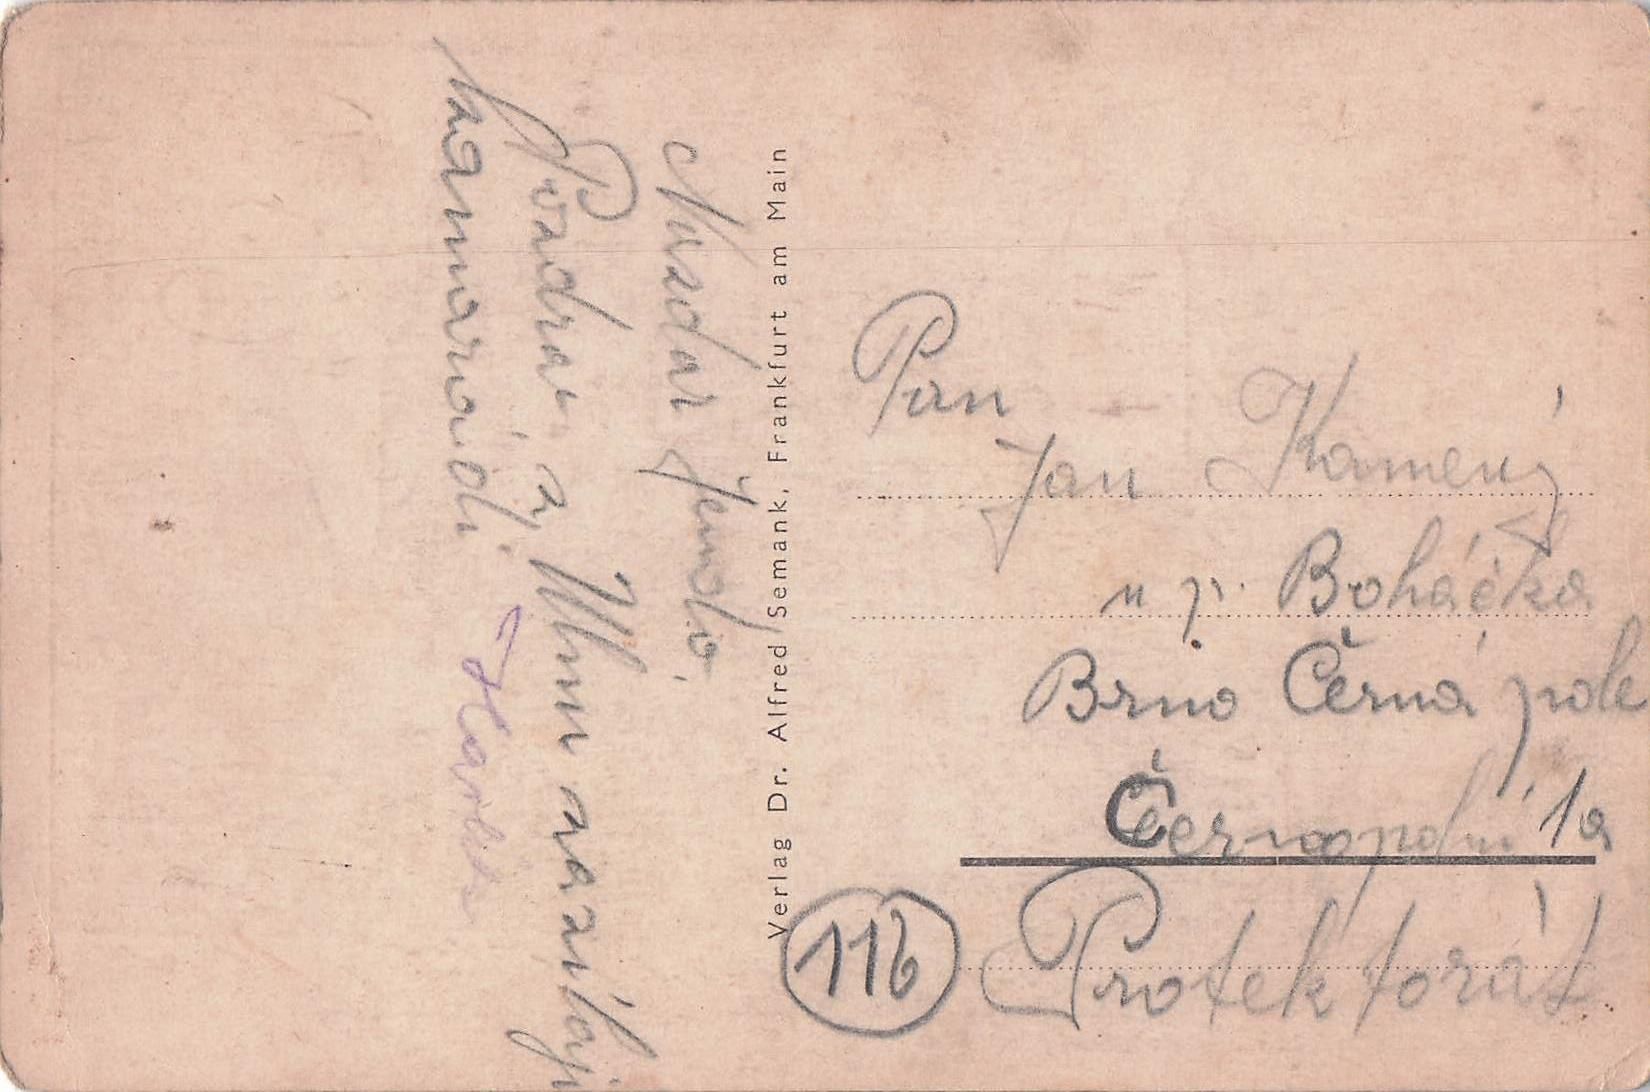 Nazdar Jendo,
Pozdrav z Ulmu zasílají
kamarádi.
Verlag Dr. Alfred Semank, Frankfurt am Main
Pan
Jan Kamený
u p. Boháčka
Brno Černá pole
Černopolní 1a
11b
Protektorát